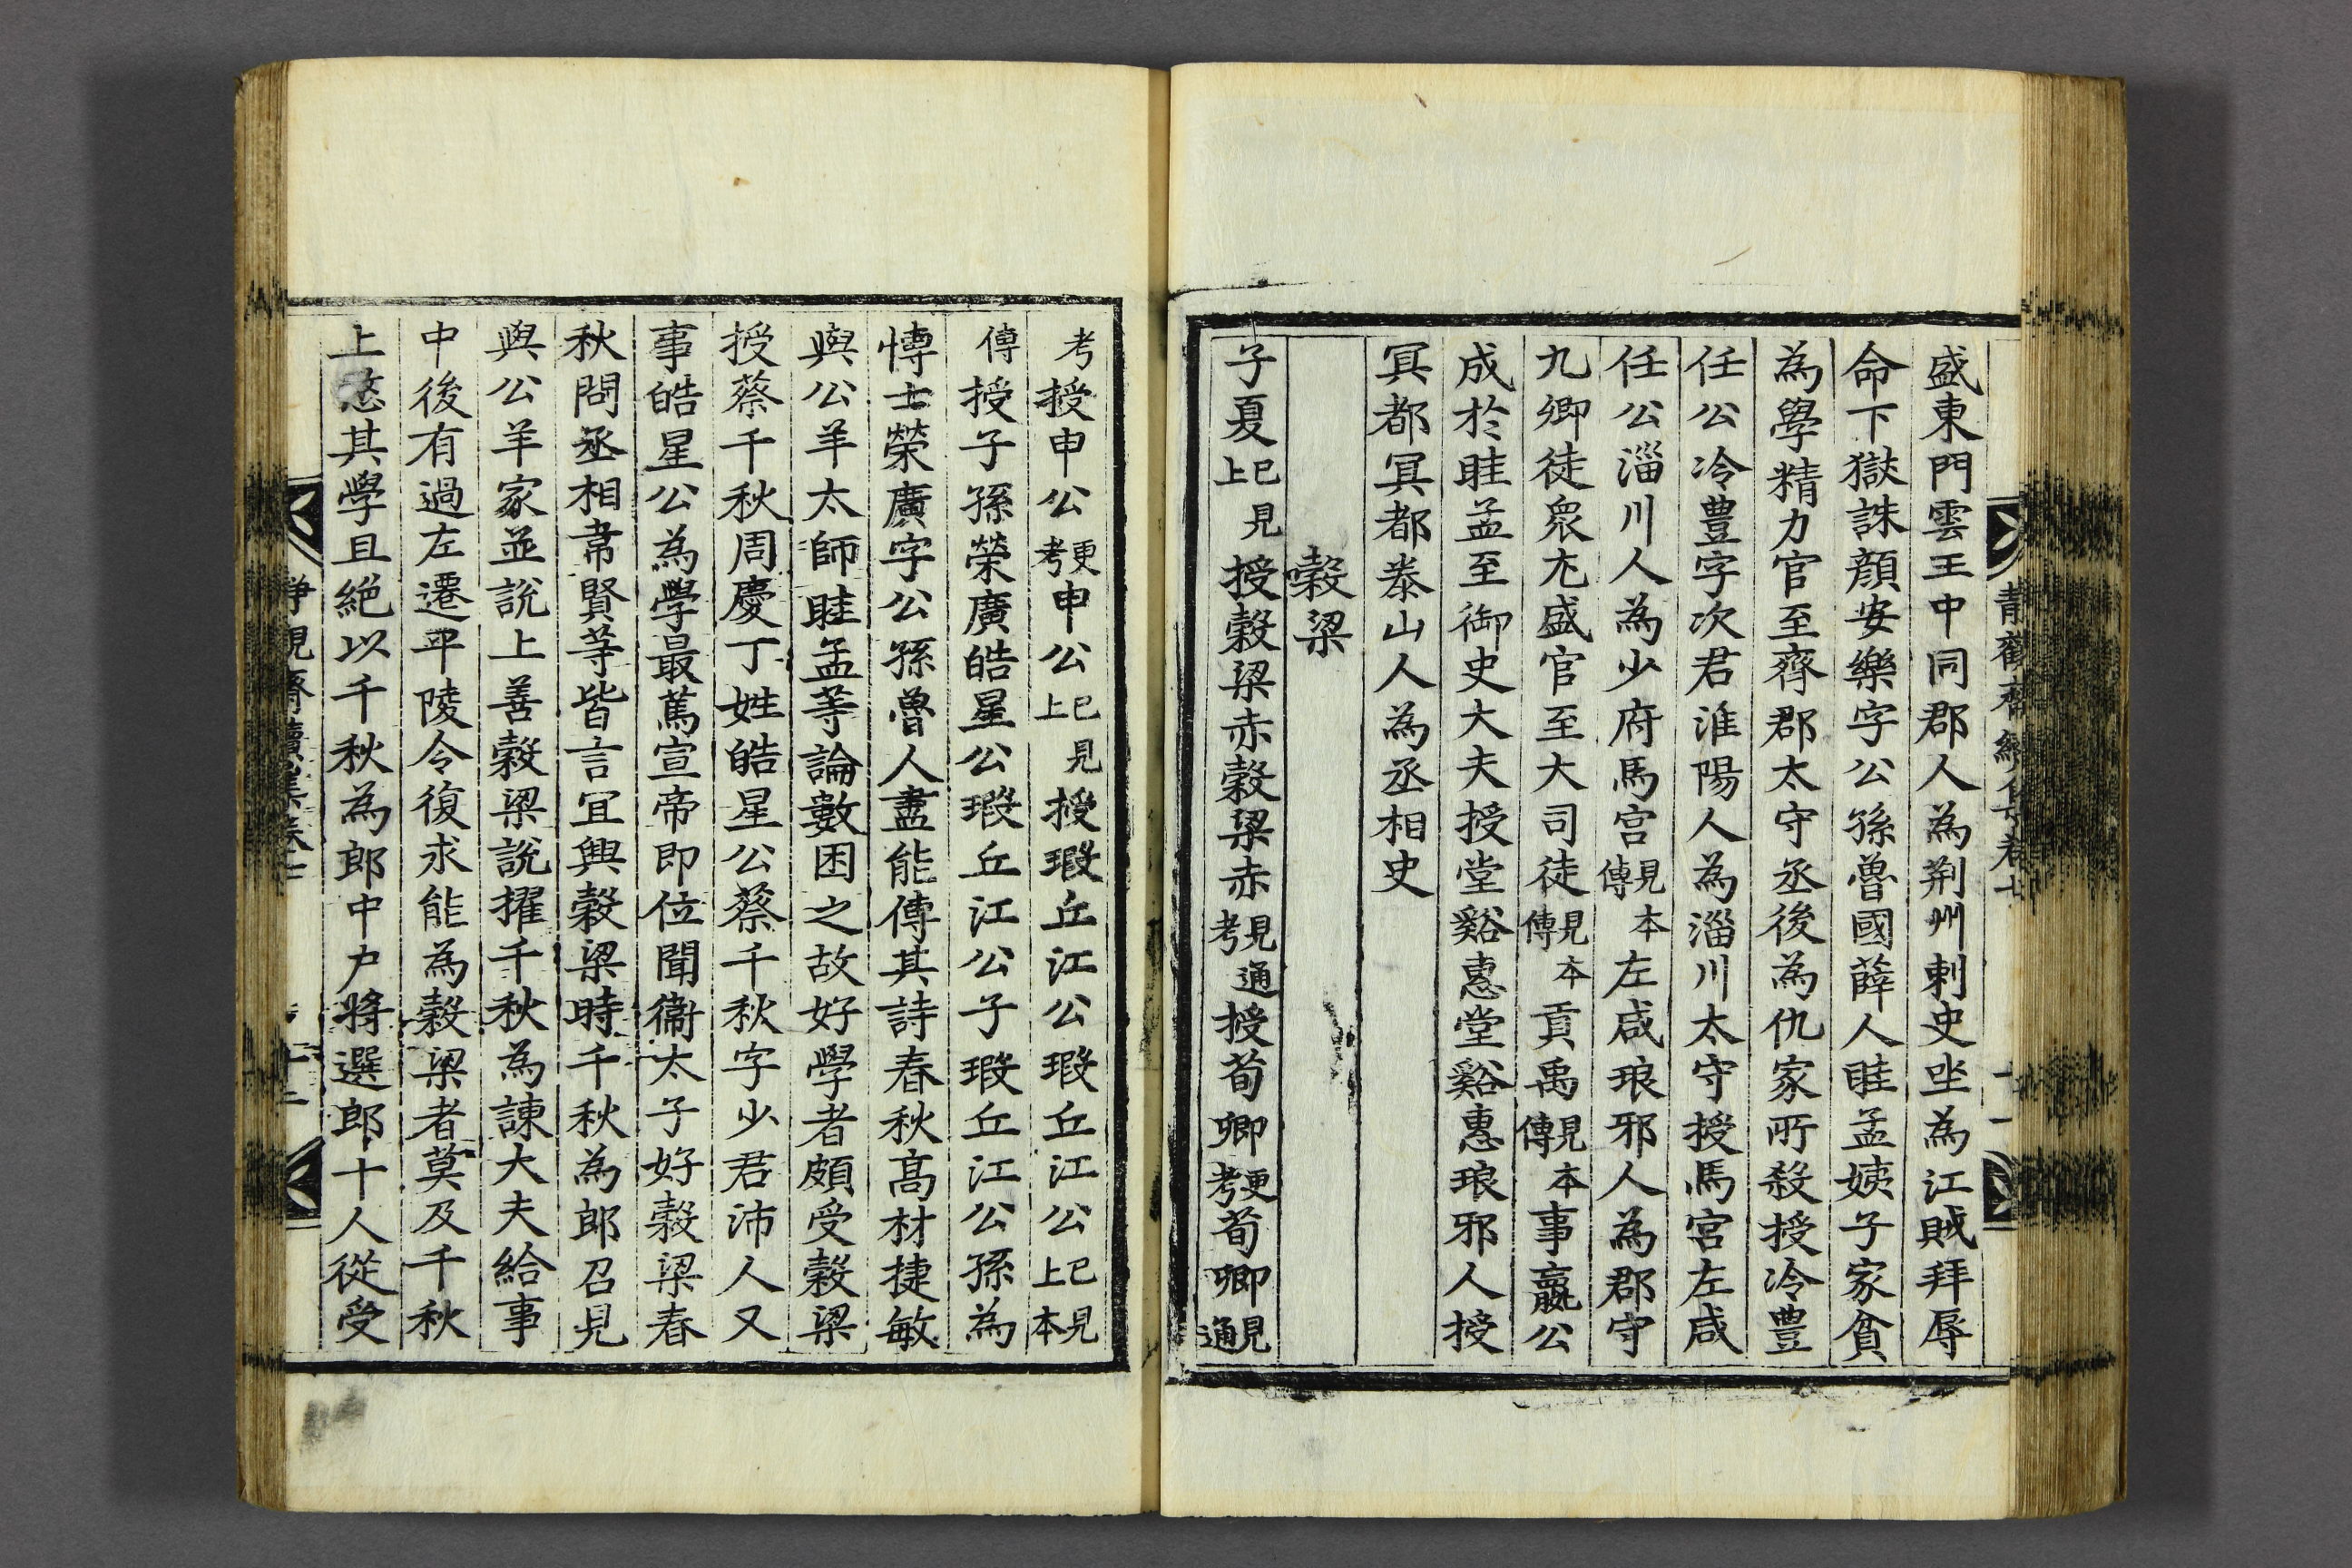 盛東門雲王中同郡人為荆州刺史坐為江賊拜辱
命下獄誅顔安樂字公孫魯國薛人眭孟姨子家貧
為學精力官至齊郡太守丞後為仇家所殺授冷豊
任公冷豊字次君淮陽人為淄川太守授馬宮左咸
任公淄川人為少府馬宮見本傳左咸琅邪人為郡守
九卿徒衆尢盛官至大司徒見本傳貢禹見本傳事嬴公
成於眭孟至御史大夫授堂谿惠堂谿惠琅邪人授
冥都冥都泰山人為丞相史
糓梁
子夏已見上授糓梁赤糓梁赤見通考授荀卿更考荀卿見通
考授申公更考申公已見上授瑕丘江公瑕丘江公已見上見本
傳授子孫榮廣皓星公瑕丘江公子瑕丘江公孫為
愽士榮廣字公孫魯人盡能傳其詩春秋高材捷敏
與公羊太師眭孟等論數困之故好學者頗受糓梁
授蔡千秋周慶丁姓皓星公蔡千秋字少君沛人又
事皓星公為學最篤宣帝即位聞衞太子好糓梁春
秋問丞相韋賢等皆言冝興糓梁時千秋為郎召見
與公羊家並說上善糓梁說擢千秋為諫大夫給事
中後有過左遷平陵令復求能為糓梁者莫及千秋
上愍其學且絕以千秋為郎中户將選郎十人從受